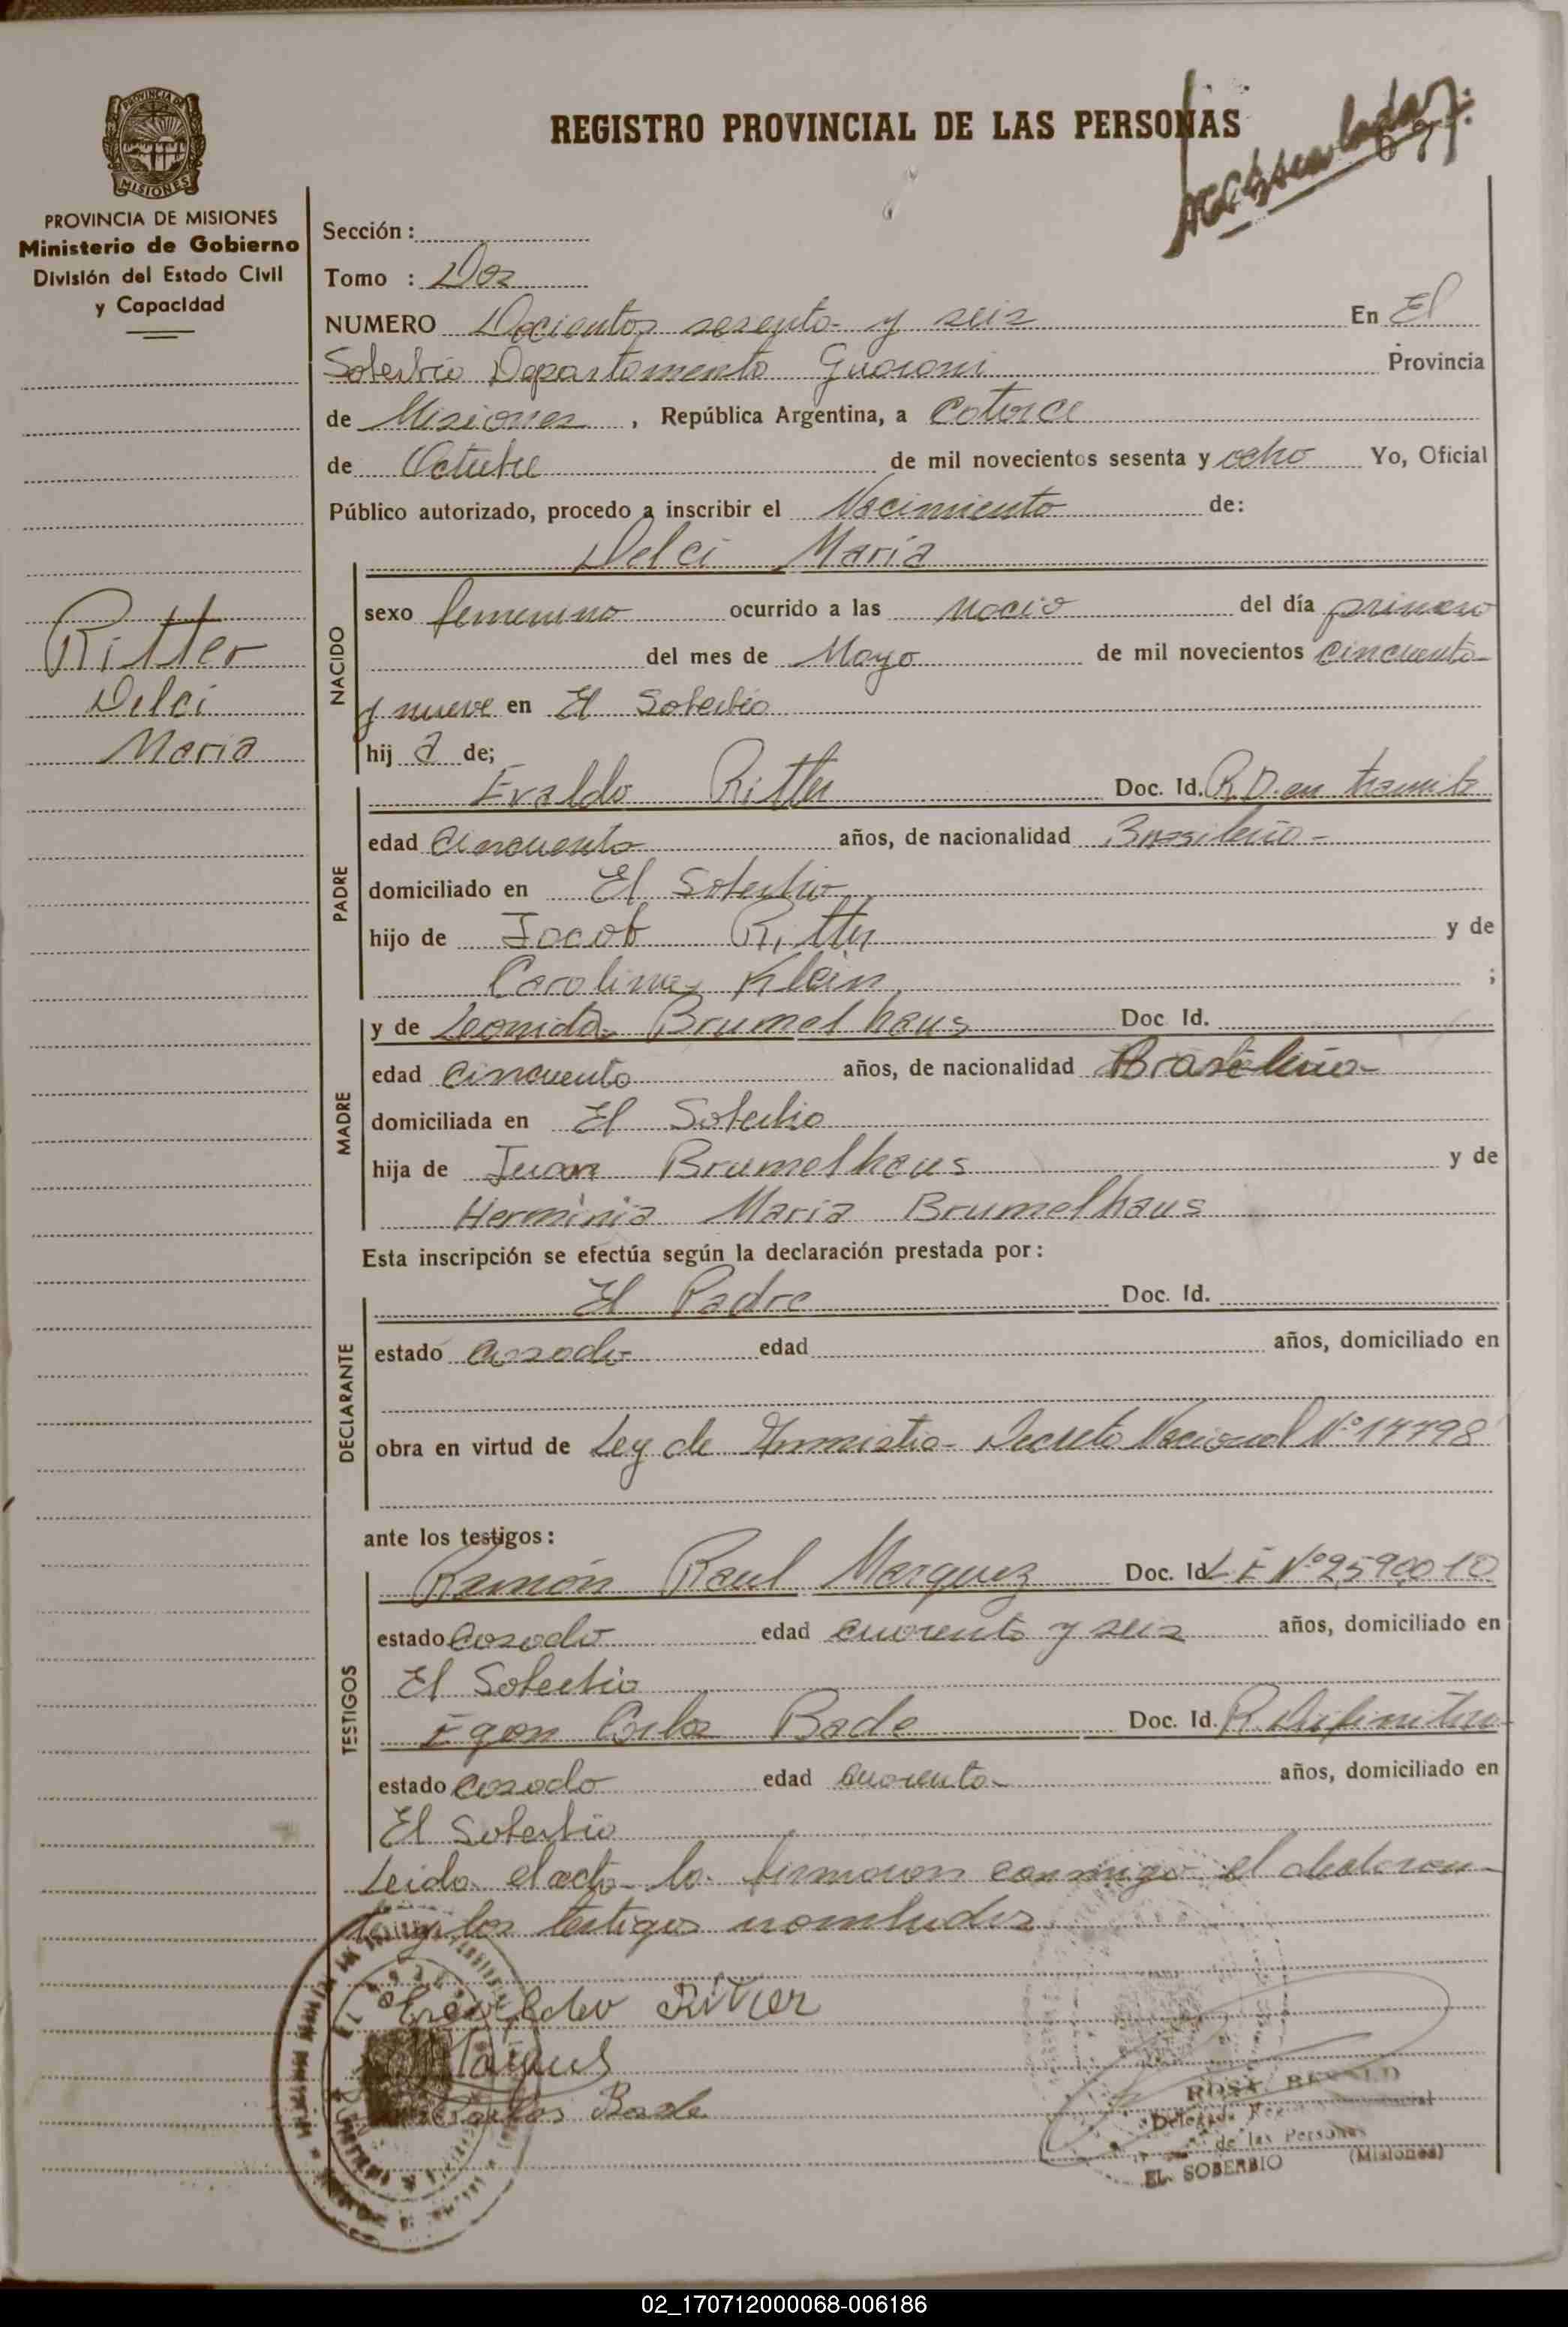 REGISTRO PROVINCIAL DE LAS PERSONAS
PROVINCIA DE MISIONES
PROVINCIA DE MISIONES
Ministerio de Gobierno
División del Estado Civil
y Capacidad
Ritter
Delci
Maria
Sección:
Tomo : Dos
NUMERO Docientos sesenta y seis En El
Soberbio Departamento Guarani Provincia
de Misiones, República Argentina, a Catorce
de Octubre de mil novecientos sesenta y ocho Yo, Oficial
Público autorizado, procedo a inscribir el Nacimiento de:
Delci María
NACIDO
sexo femenino ocurrido a las del día primero
del mes de Mayo de mil novecientos cincuenta
y nueve en El Soberbio
hij a de;
PADRE
Evaldo Ritter Doc. Id. R.D. en tramite
edad cincuenta años, de nacionalidad Brasileña
domiciliado en El Soberbio
hijo de Jacob Ritter y de
Carolina Klein ;
MADRE
y de Leonida Brumelhaus Doc Id.
edad cincuenta años, de nacionalidad Brasileña
domiciliada en El Soberbio
hija de Juan Brumelhaus y de
Herminia Maria Brumelhaus
Esta inscripción se efectúa según la declaración prestada por:
DECLARANTE
El Padre Doc. Id.
estado casado edad años, domiciliado en
obra en virtud de Ley de Decreto Nacional Nº
ante los testigos:
TESTIGOS
Ramón Raul Marquez Doc. Id L E Nº 2590010
estado casado edad cuarenta y seis años, domiciliado en
El Soberbio
Egon Carlos Bade Doc. Id. R. Definitiva
estado casado edad cuarenta años, domiciliado en
El Soberbio
Leida el acta la firmaron conmigo el declaran
te y los testigos nombrados
Ritter
Carlos Bade
Delegada
de las Personas
EL SOBERBIO (Misiones)
02_170712000068-006186